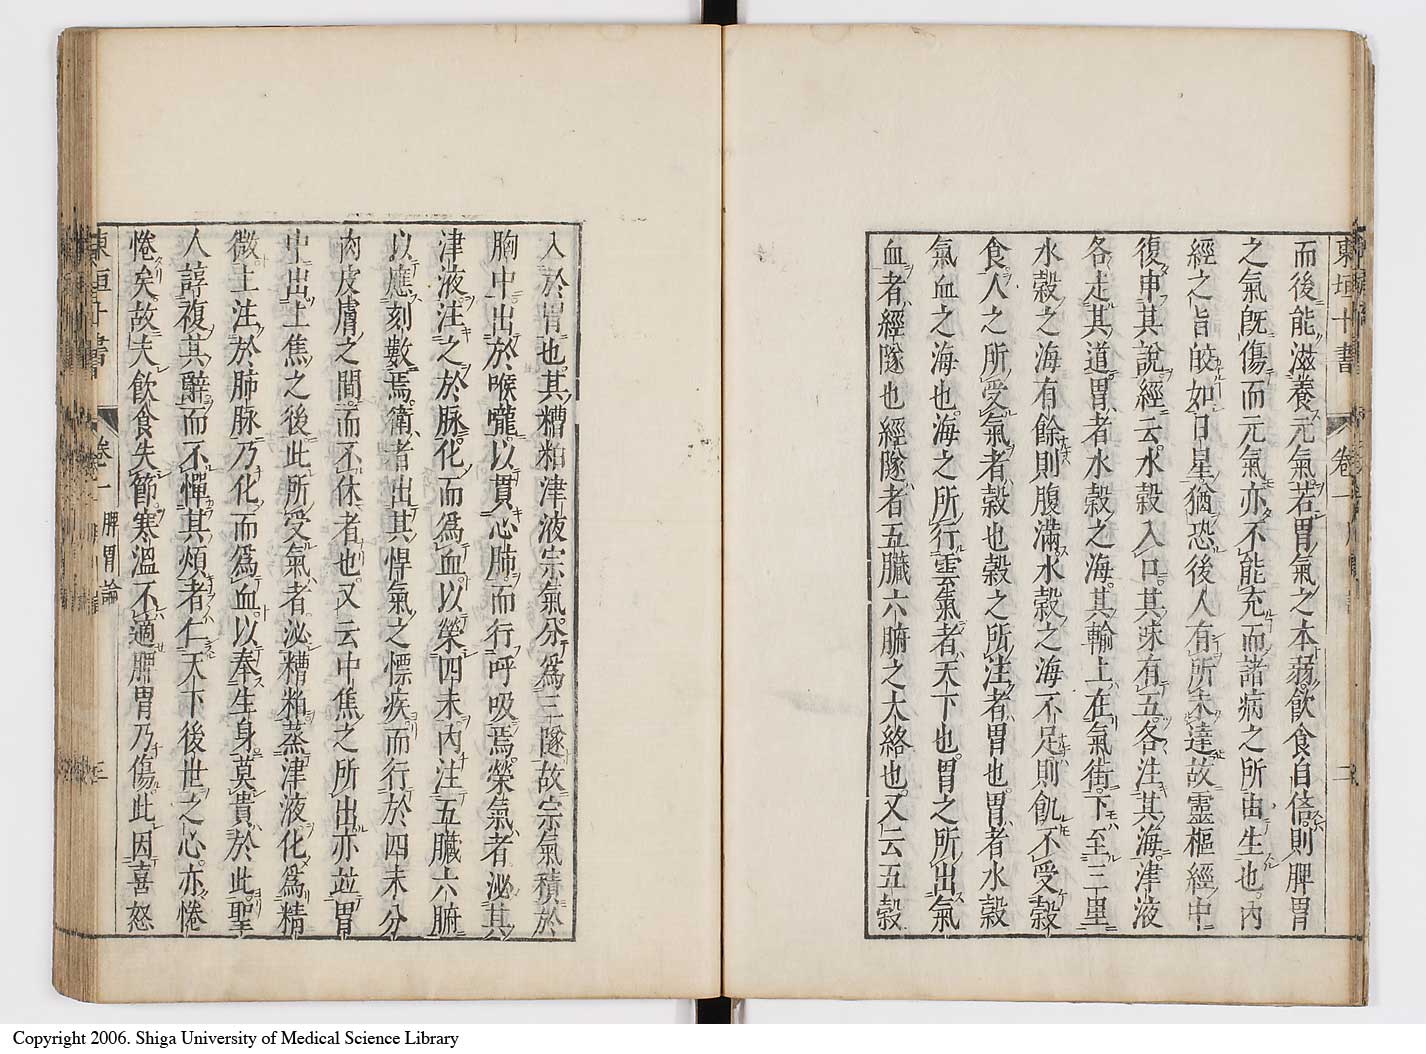 東垣十書 卷一
而後能滋養元氣若胃氣之本弱飲食自倍則脾胃
之氣旣傷而元氣亦不能充而諸病之所由生也內
經之旨皎如日星猶恐後人有所未達故靈樞經中
復申其說經云水穀入口其味有五各注其海津液
各走其道胃者水穀之海其輸上在氣街下至三里
水穀之海有餘則腹滿水穀之海不足則飢不受穀
食人之所受氣者穀也穀之所注者胃也胃者水穀
氣血之海也海之所行雲氣者天下也胃之所出氣
血者經隧也經隧者五臟六腑之大絡也又云五穀
入於胃也其糟粕津液宗氣分爲三隧故宗氣積於
胸中出於喉嚨以貫心肺而行呼吸焉榮氣者泌其
津液注之於脉化而爲血以榮四末內注五臟六腑
以應刻數焉衛者出其悍氣之慓疾而行於四末分
肉皮膚之間而不休者也又云中焦之所出亦並胃
中出上焦之後此所受氣者泌糟粕蒸津液化爲精
微上注於肺脉乃化而爲血以奉生身莫貴於此聖
人諄複其辭而不憚其煩者仁天下後世之心亦惓
惓矣故夫飲食失節寒溫不適脾胃乃傷此因喜怒
東垣十書 卷一 脾胃論 三
Copyright 2006. Shiga University of Medical Science Library